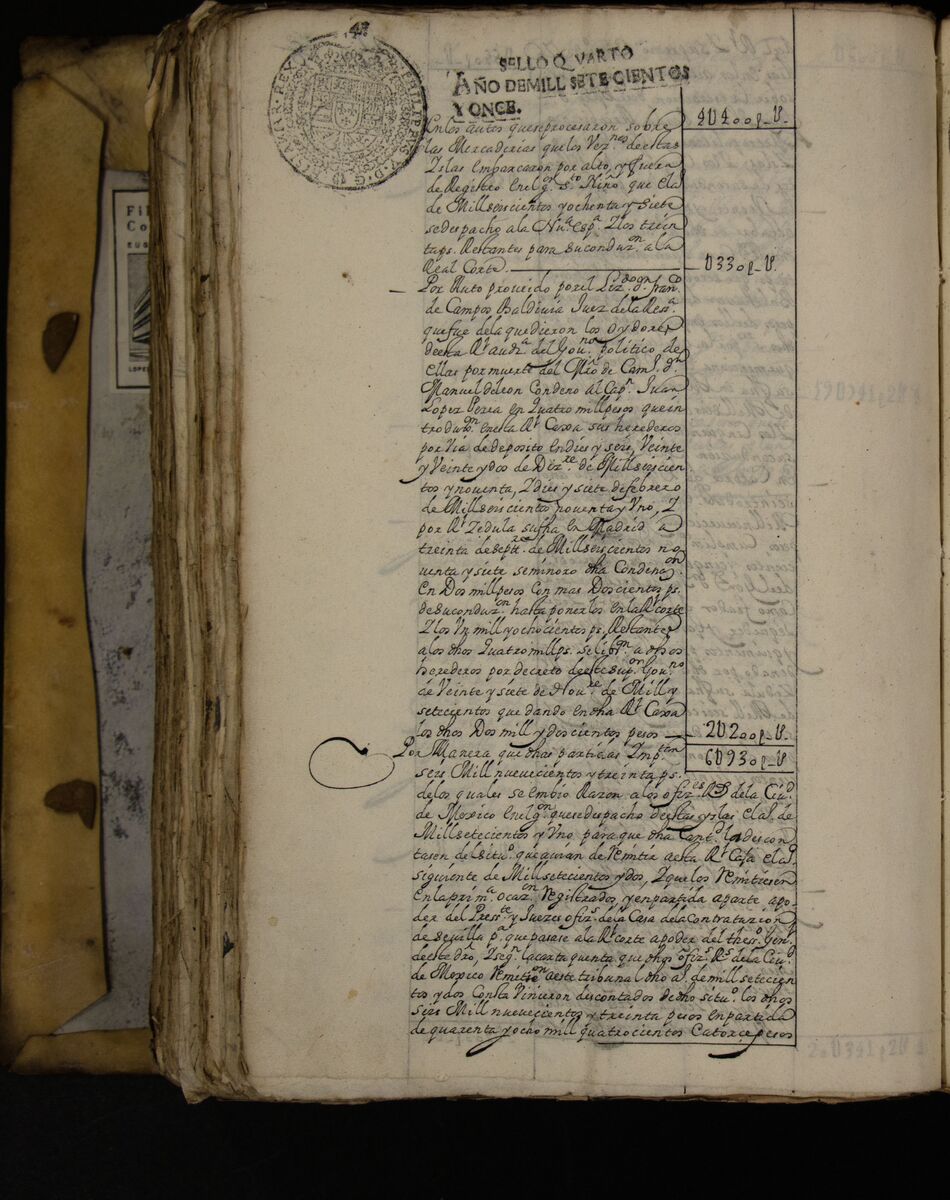 47
SELLO QVARTO
AÑO DE MILL SETECIENTOS
Y ONCE.
En los autos que se procesaron sobre
las Mercaderias que los Vez.nos de estas
Yslas embarcaron por alto, y fuera
de Registro en el g.on S.to Niño que el a.o
de Mill seiscientos y ochenta y siete
se despacho a la Nu.a esp.a Y los trein
ta ps. Restantes para su conduz.on a la
Real Corte.
U330 p. U.
Por Auto proveido por el Liz.do D.n fran.co
de Campos Baldiuia Juez de la Res.a
que fue de la que dieron los oydores
de esta R.l Aud.a del Gou.no politico de
ellas por muerte del M.ro de Camp.o D.n
Manuel de leon Condeno al Cap.n Juan
Lopez Perea en Quatro mill pesos que in
trodux.on en esta R.l Caxa sus herederos
por via de deposito en dies y seis, Veinte
y Veinte y dos de Diz.re de Mill seiscien
tos y nouenta, Y dies y siete de febrero
de Mill seiscientos nouenta y Uno, Y
por R.l Zedula su fha en Madrid a
treinta de sept.re de Mill seiscientos no
uenta y siete se minoro dha Condenaz.on
en Dos mill pesos Con mas Doscientos ps.
de su conduz.on hasta ponerlos en la R.l corte
Y los Un mill y ochocientos ps. Restantes
a los dhos Quatro mill ps. se lib.on a dhos
herederos por decreto de este sup.or Gou.no
de Veinte y siete de Nou.re de Mill y
setecientos quedando en dha R.l Caxa
los dhos Dos mill y doscientos pesos
2U200 p. U.
Por Manera que dhas partidas Ymp.tan
6U930 p. U.
seis Mill nuevecientos y treinta ps.
de los quales se embio Razon a los ofiz.es R.s de la Ciu.d
de Mexico en el g.on que se despacho de estas yslas el a.o de
Mill setecientos y Uno para que dha Cant.d la descon
tasen del situ.o que auian de Remitir a esta R.l Caja el a.o
siguiente de Mill setecientos y dos, Y que los Remitiesen
en la prim.a ocaz.on Registrados, y en partida aparte a po
der del Press.te y Juezes ofiz.s de la Casa de la Contratacion
de Seuilla p.a que pasase a la R.l corte a poder del thes.o Gen.l
de este dro, Y seg.n la carta quenta que dhos ofiz.s R.s de la Ciu.d
de Mexico Remitieron a este tribunal dho a.o de mill setecien
tos y dos Consta Vinieron descontados de dho situ.o los dhos
seis Mill nuevecientos y treinta pesos en partida
de quarenta y ocho mill quatrocientos Catorce pesos